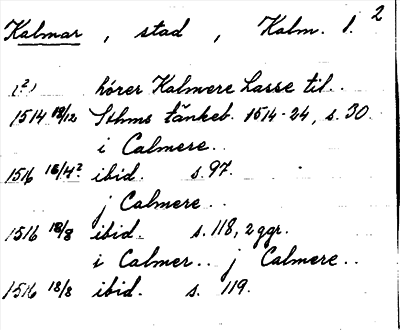 Kalmar, stad, Kalm. l. 2
(?) hörer Kalmere Lasse til..
1514 18/12 Sthms tänkeb. 1514-24, s. 30.
i Calmere..
1516 16/4? ibid. s. 97.
j Calmere..
1516 18/8 ibid. s. 118, 2 ggr.
i Calmer.. j Calmere..
1516 18/8 ibid. s. 119.